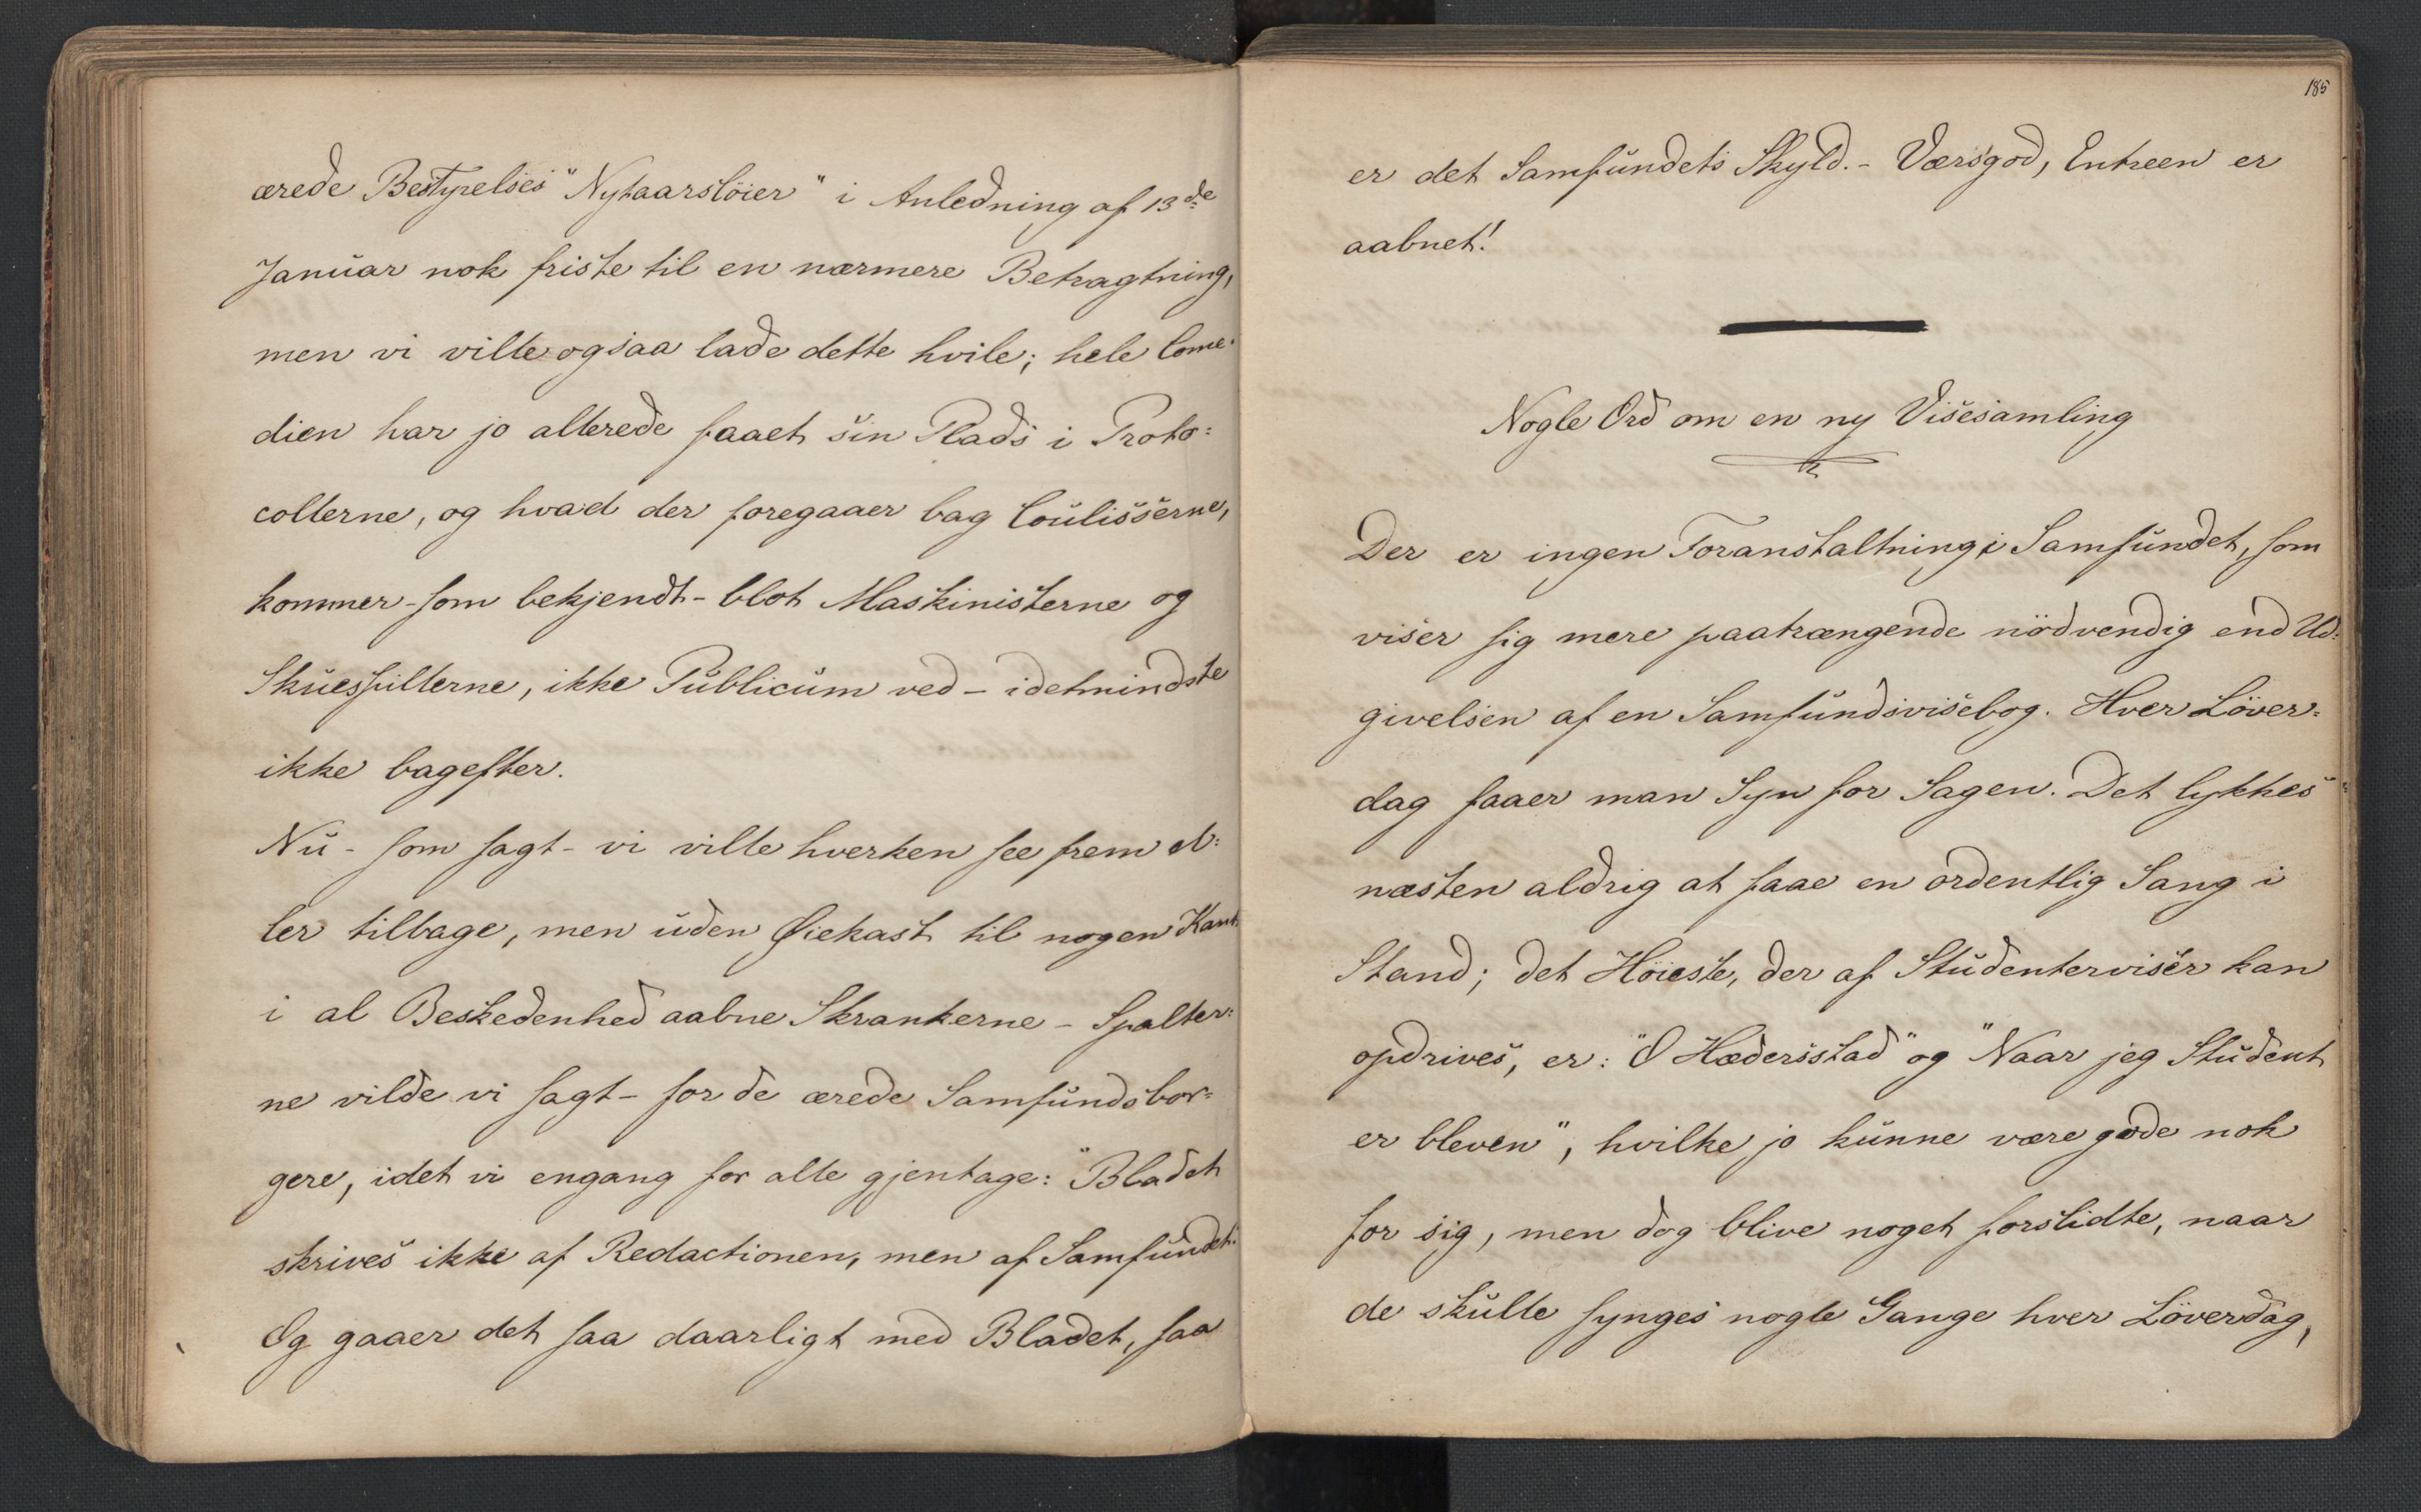 ærede Bestyrelses "Nytaarsløier" i Anledning af 13de
Januar nok friste til en nærmere Betragtning,
men vi ville ogsaa lade dette hvile; hele Come-
dien har jo allerede faaet sin Plads i Proto=
collerne, og hvad der foregaaer bag Coulisserne,
kommer - som bekjendt - blot Maskinisterne og
Skuespillerne, ikke Publicum ved - idetmindste
ikke bagefter.
Nu - som sagt - vi ville hverken see frem el=
ler tilbage, men uden Øiekast til nogen Kant
i al Beskedenhed aabne Skrankerne - Spalter=
ne vilde vi sagt - for de ærede Samfundsbor=
gere, idet vi engang for alle gjentage: "Bladet
skrives ikke af Redactionen, men af Samfundet."
Og gaaer det saa daarligt med Bladet, saa
185
er det Samfundets Skyld. - Værsgod, Entreen er
aabnet!
Nogle Ord om en ny Visesamling
Der er ingen Foranstaltning i Samfundet, som
viser sig mere paatrængende nödvendig end Ud=
givelsen af en Samfundsvisebog. Hver Löver=
dag faaer man Syn for Sagen. Det lykkes
næsten aldrig at faae en ordentlig Sang i
Stand; det Höieste, der af Studenterviser kan
opdrives, er: "O Hædersstad" og "Naar jeg Student
er bleven", hvilke jo kunne være gode nok
for sig, men dog blive noget forslidte, naar
de skulle synges nogle Gange hver Löverdag,